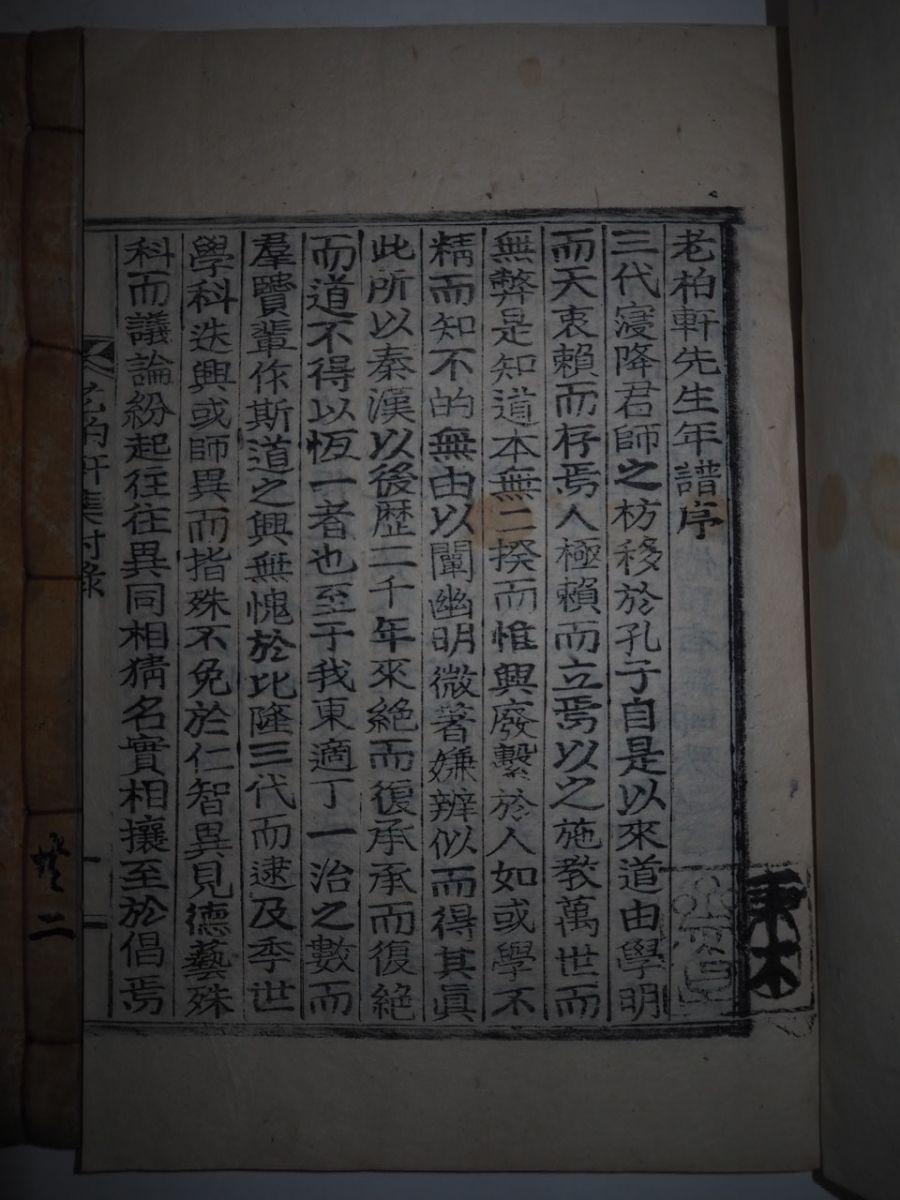 老柏軒先生年譜序
三代寖降君師之枋移於孔子自是以來道由學明
而天衷賴而存焉人極賴而立焉以之施教萬世而
無弊是知道本無二揆而惟興廢繫於人如或學不
精而知不的無由以闡幽明微著嫌辨似而得其眞
此所以秦漢以後歷二千年來絕而復承承而復絕
而道不得以恆一者也至于我東適丁一治之數而
羣賢輩作斯道之興無愧於比隆三代而逮及季世
學科迭興或師異而指殊不免於仁智異見德藝殊
科而議論紛起往往異同相猜名實相攘至於倡焉
老柏軒集附錄
一
二